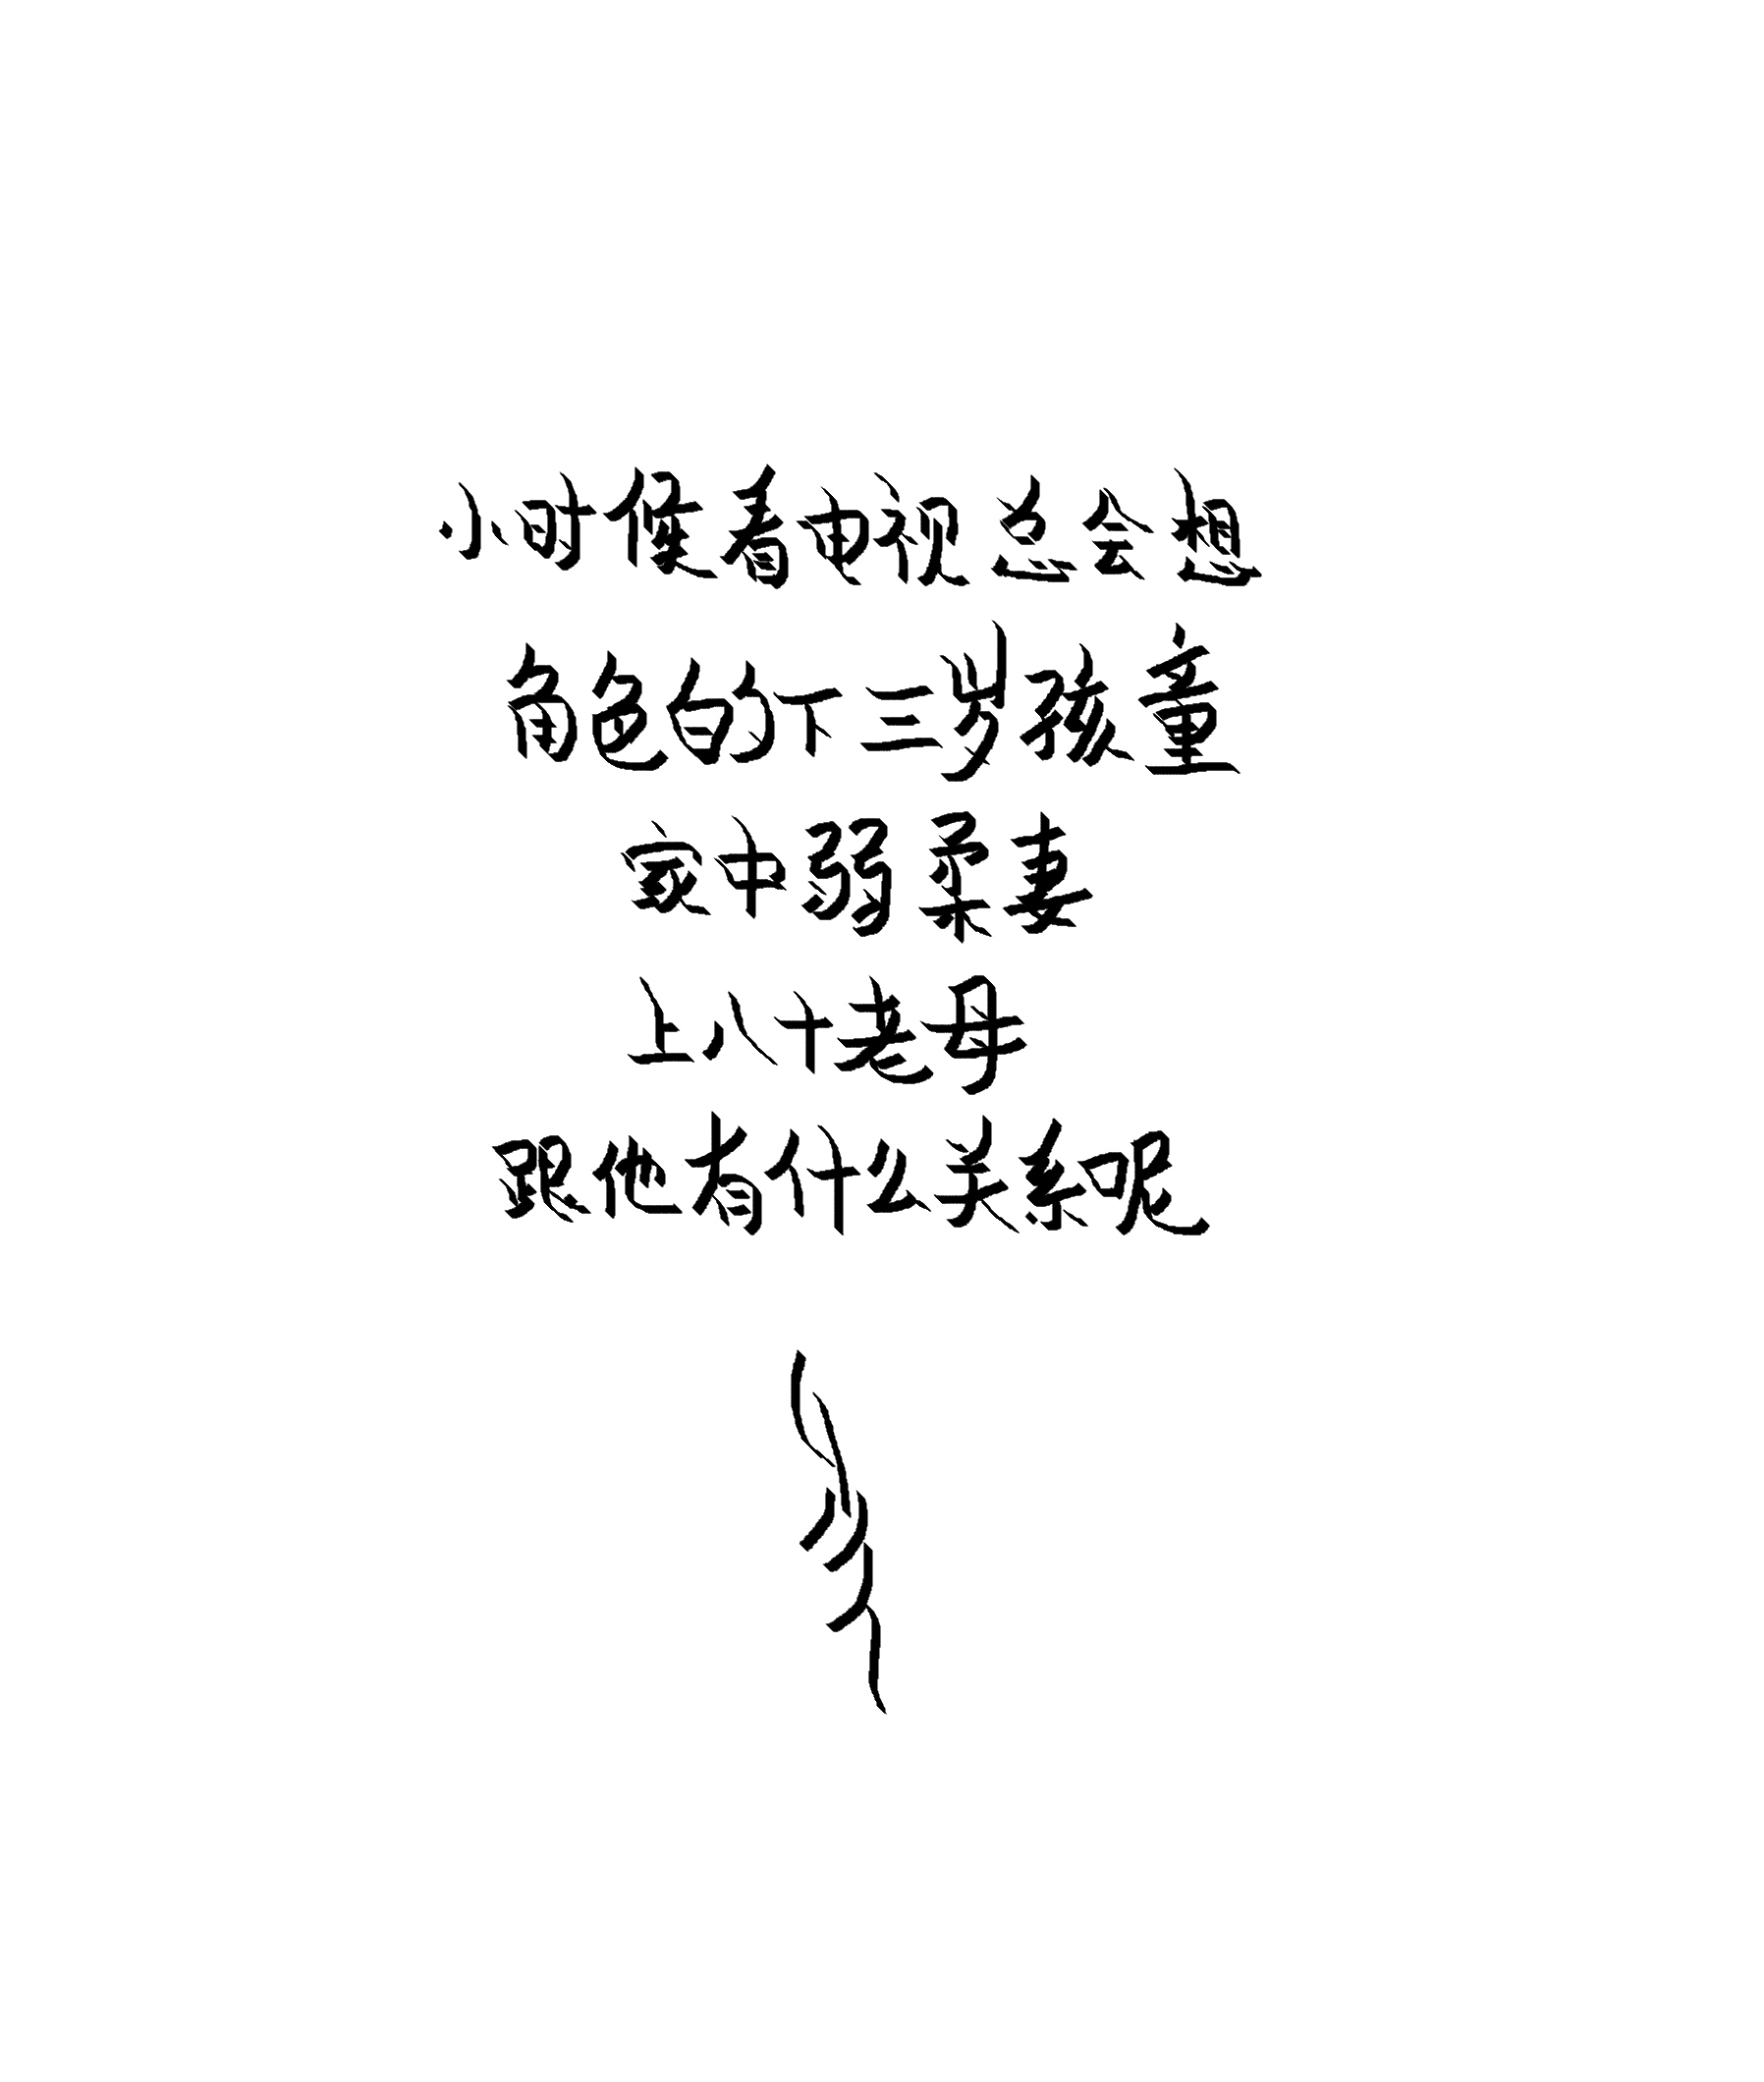 小时候看电视总会想
角色的下三岁孩童
家中弱柔妻
上八十老母
跟他有什么关系呢